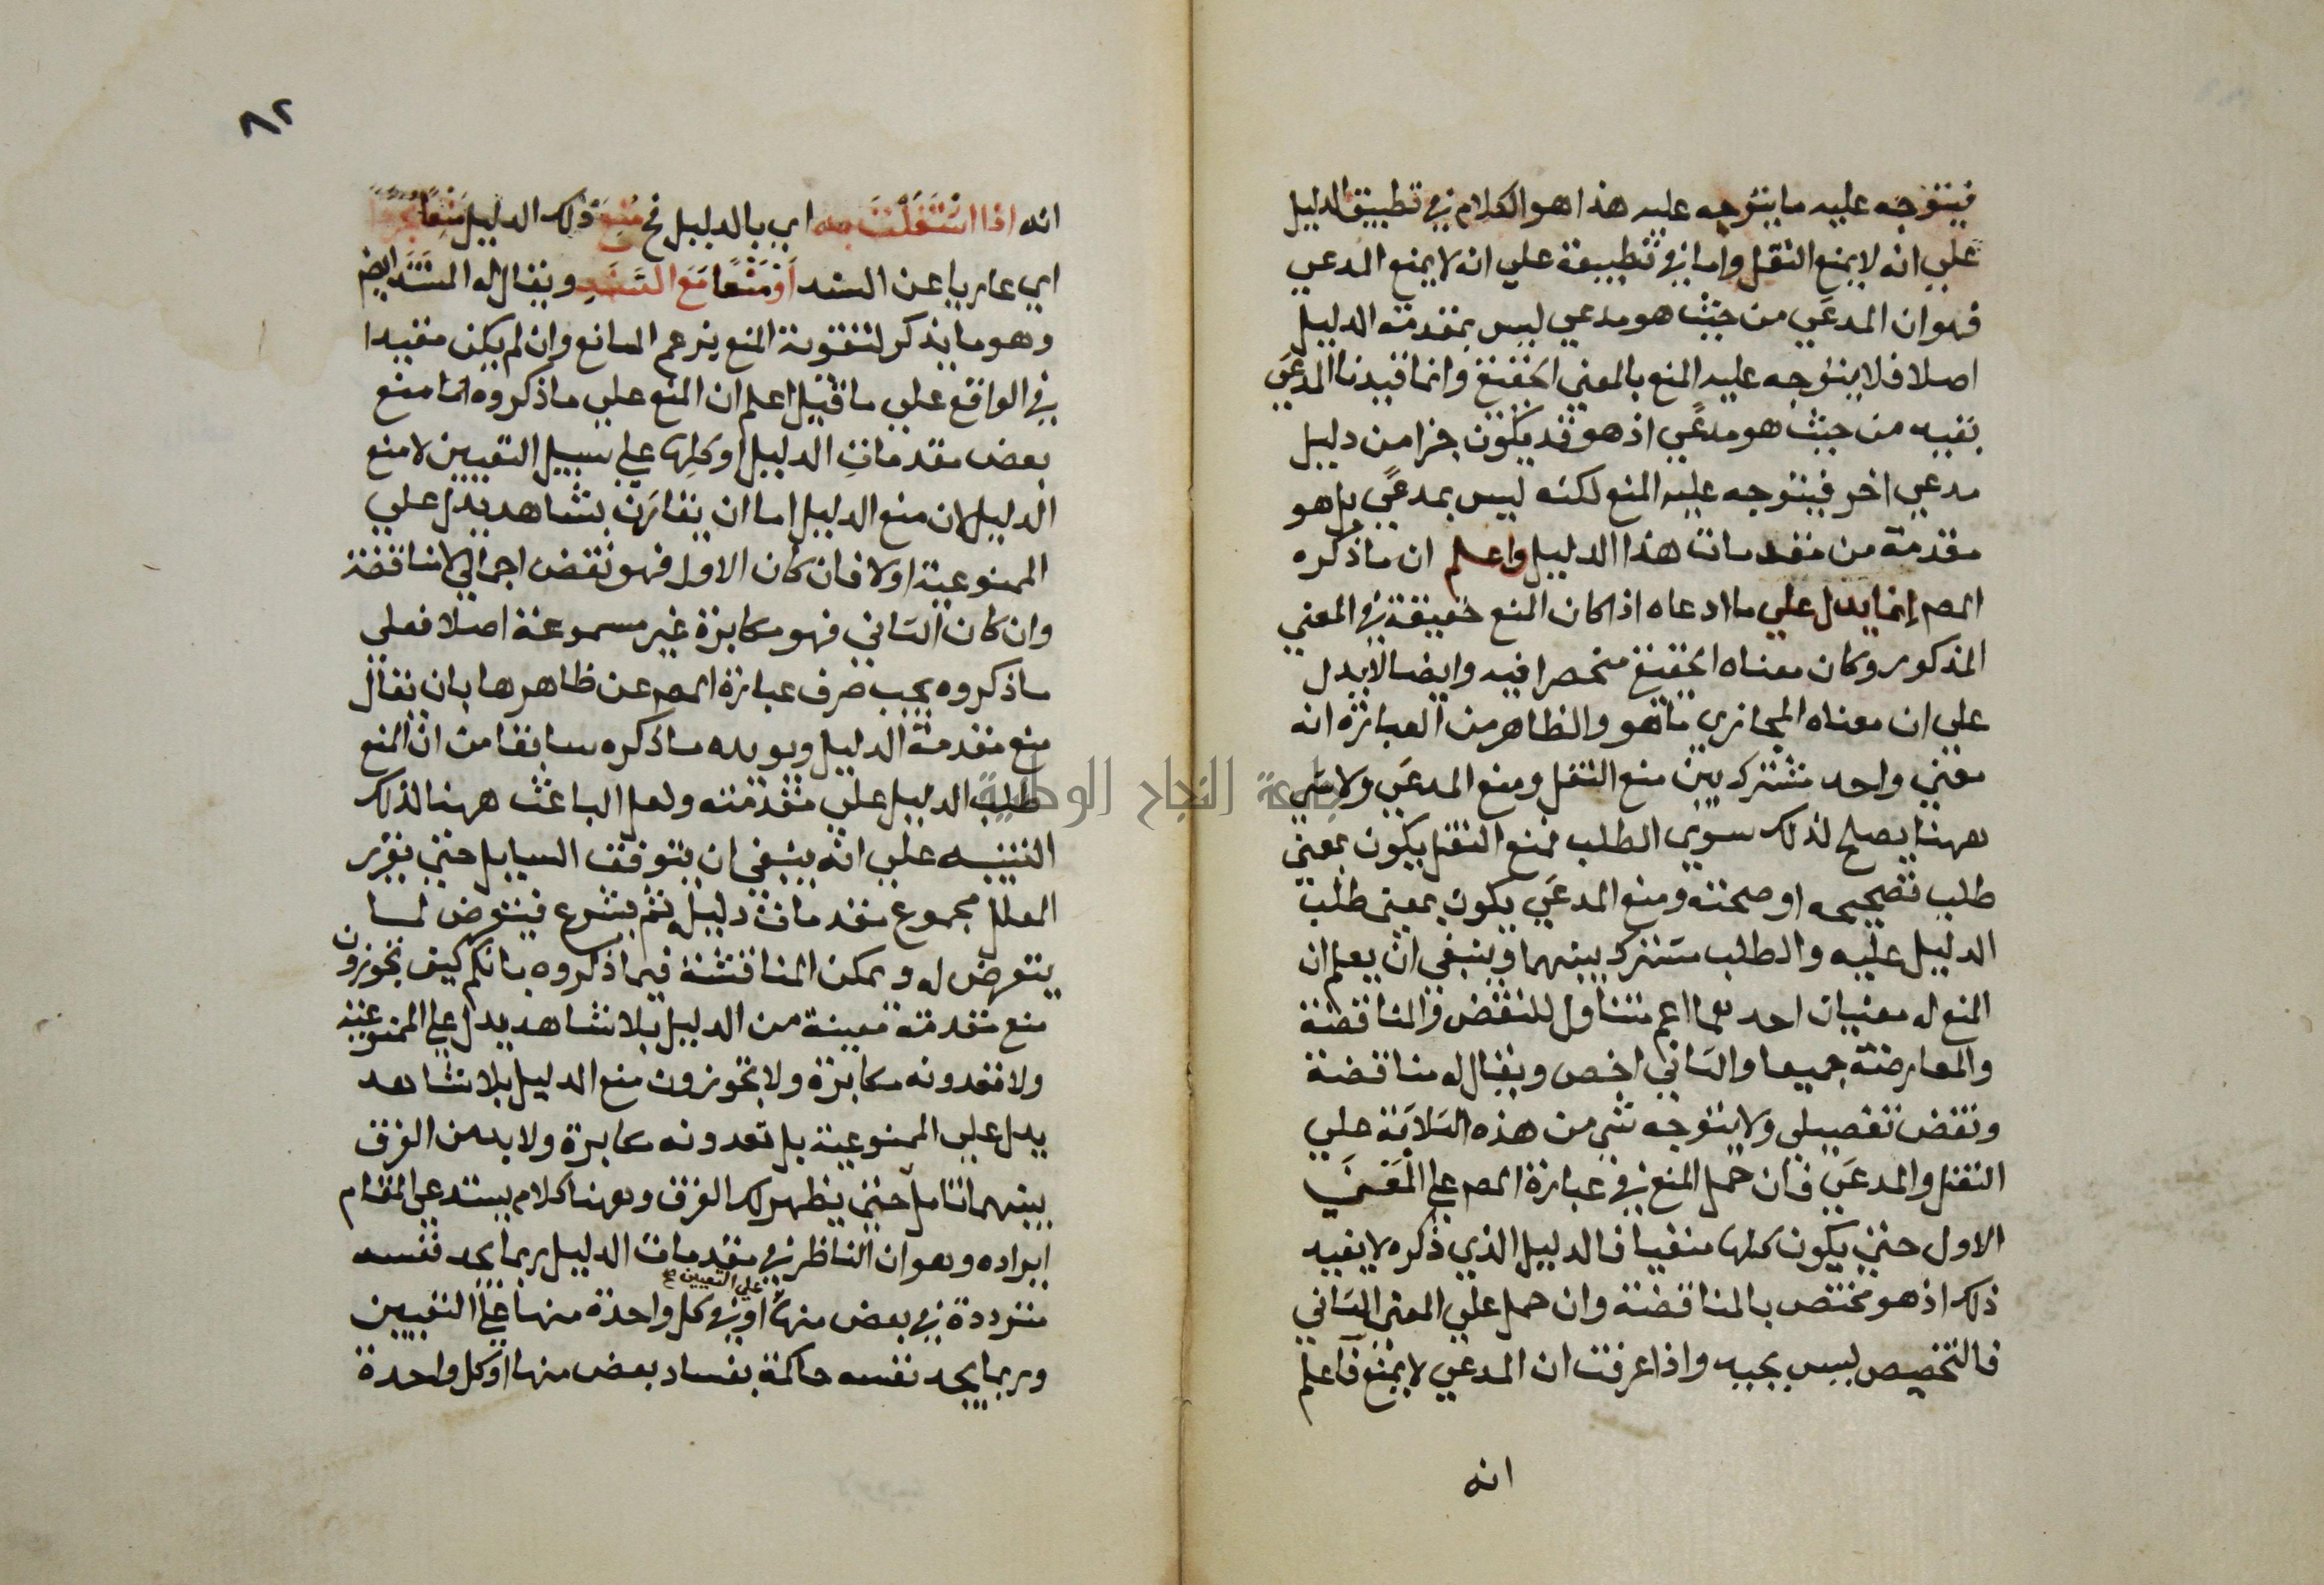 فيتوجه عليه ما يتوجه عليه هذا هو الكلام في تطبيق الدليل
علي انه لا يمنع النقل واما في تطبيقة علي انه لا يمنع المدعي
فهو ان المدعَي من حيث هو مدعي ليس بمقدمة الدليل
اصلا فلا يتوجه عليه المنع بالمعني الحقيقي وانما قيدنا المدعَي
بقيه من حيث هو مدعًي اذ هو قد يكون جزا من دليل
مدعي اخر فيتوجه عليه المنع لكنه ليس بمدعًي بل هو
مقدمة من مقدمات هذا الدليل واعلم ان ما ذكره
المص إنما يدل علي ما ادعاه اذا كان المنع حقيقة في المعني
المذكور وكان معناه الحقيقي منحصرا فيه وايضا لا يدل
علي ان معناه المجازي ما هو والظاهر من العبارة انه
معني واحد مشترك بين منع النقل ومنع المدعَي ولا شي
ههنا يصلح لذلك سوي الطلب فمنع النقل يكون بمعني
طلب تصحيحه او صحته ومنع المدعَي يكون بمعني طلب
الدليل عليه والطلب مشترك بينهما وينبغي ان يعلم ان
المنع له معنيان احدهما اعم متناول للنقض والمناقضة
والمعارضة جميعا والثاني اخص ويقال له مناقضة
ونقض تفصيلي ولا يتوجه شي من هذه الثلاثة علي
النقل والمدعَي فان حمل المنع في عبارة المص علي المَعني
الاول حتي يكون كلها منفيا فالدليل الذي ذكره لا يفيد
ذلك اذ هو مختص بالمناقضة وان حمل علي المعني الثاني
فالتخصيص ليس بجيد واذا عرفت ان المدعي لا يمنع فاعلم
انه
٨٢
انه اذا اشتَغَلتَ به اي بالدليل مُنِعَ ذلك الدليل مَنعًا مُجرَّدًا
اي عاريا عن السند اَوْ مَنْعًا مَعَ السَّنَدِ ويقال له المستَنَد ايضا
وهو ما يذكر لتقوية المنع بزعم المانع وان لم يكن مفيدا
في الواقع علي ما قيل اعلم ان المنع علي ما ذكروه انما منع
بعض مقدمات الدليل او كلها علي سبيل التعيين لا منع
الدليل لان منع الدليل اما ان يقارن بشاهد يدل علي
الممنوعية او لا فان كان الاول فهو نقض اجمالي لا مناقضة
وان كان الثاني فهو مكابرة غير مسموعة اصلا فعلي
ما ذكروه يجب صرف عبارة المص عن ظاهرها بان يقال
منع مقدمة الدليل ويويده ما ذكره سابقا من ان المنع
طلب الدليل علي مقدمته ولعل الباعث ههنا لذلك
التنبيه علي انه ينبغي ان يتوقف السايل حتي يقرر
المعلل مجموع مقدمات دليله ثم يشرع فيتعرض لما
يتعرض له ويمكن المناقشة فيما ذكروه بانكم كيف تجوزون
منع مقدمة معينة من الدليل بلا شاهد يدل علي الممنوعية
ولا تعدونه مكابرة ولا تجوزون منع الدليل بلا شاهد
يدل علي الممنوعية بل تعدونه مكابرة ولا بد من الفرق
بينهما تامل حتي يظهر لك الفرق وههنا كلام يستدعي المقام
ايراده وهو ان الناظر في مقدمات الدليل ربما يجد نفسه
علي التعيين صح
مترددة في بعض منها او في كل واحدة منها علي التعيين
وربما يجد نفسه حاكمة بفساد بعض منها او كل واحدة
جامعة النجاح الوطنية